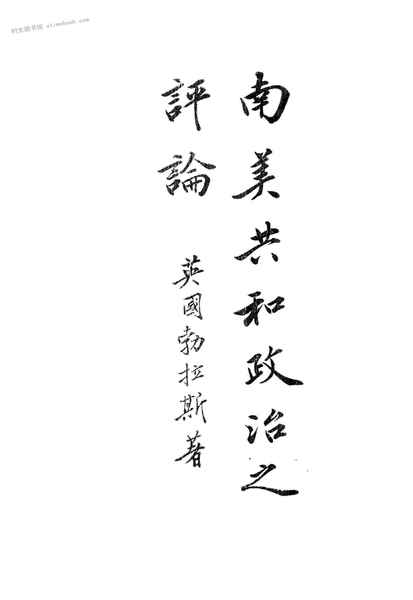 南美共和政治之
評論
英國勃拉斯著